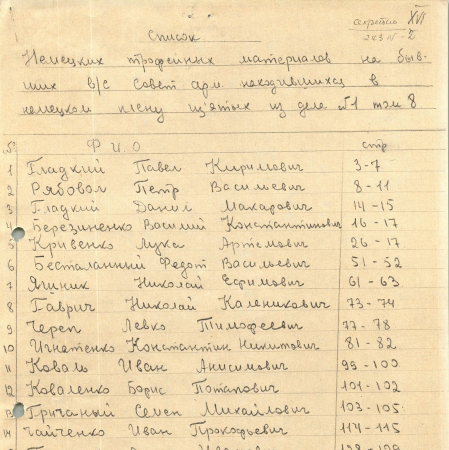 секретно XVI
экз N-5
Список
Немецких трофейных материалов на быв-
ших в/с Совет арм. находившихся в
немецком плену из'ятых из дела №1 том 8
№ Ф И О стр
1 Гладкий Павел Киримович 3-7
2 Рябовол Петр Васильевич 8-11
3 Гладкий Данил Макарович 14-15
4 Березиненко Василий Константинович 16-17
5 Кривенко Лука Артемович 26-17
6 Бесталанный Федот Васильевич 51-52
7 Яшник Николай Ефимович 61-63
8 Гаврич Николай Каленикович 73-74
9 Череп Левко Тимофеевич 77-78
10 Игнатенко Константин Никитович 81-82
11 Коваль Иван Анисимович 99-100
12 Коваленко Борис Потапович 101-102
13 Гричаный Семен Михайлович 103-105
14 Чайченко Иван Прокофьевич 114-115